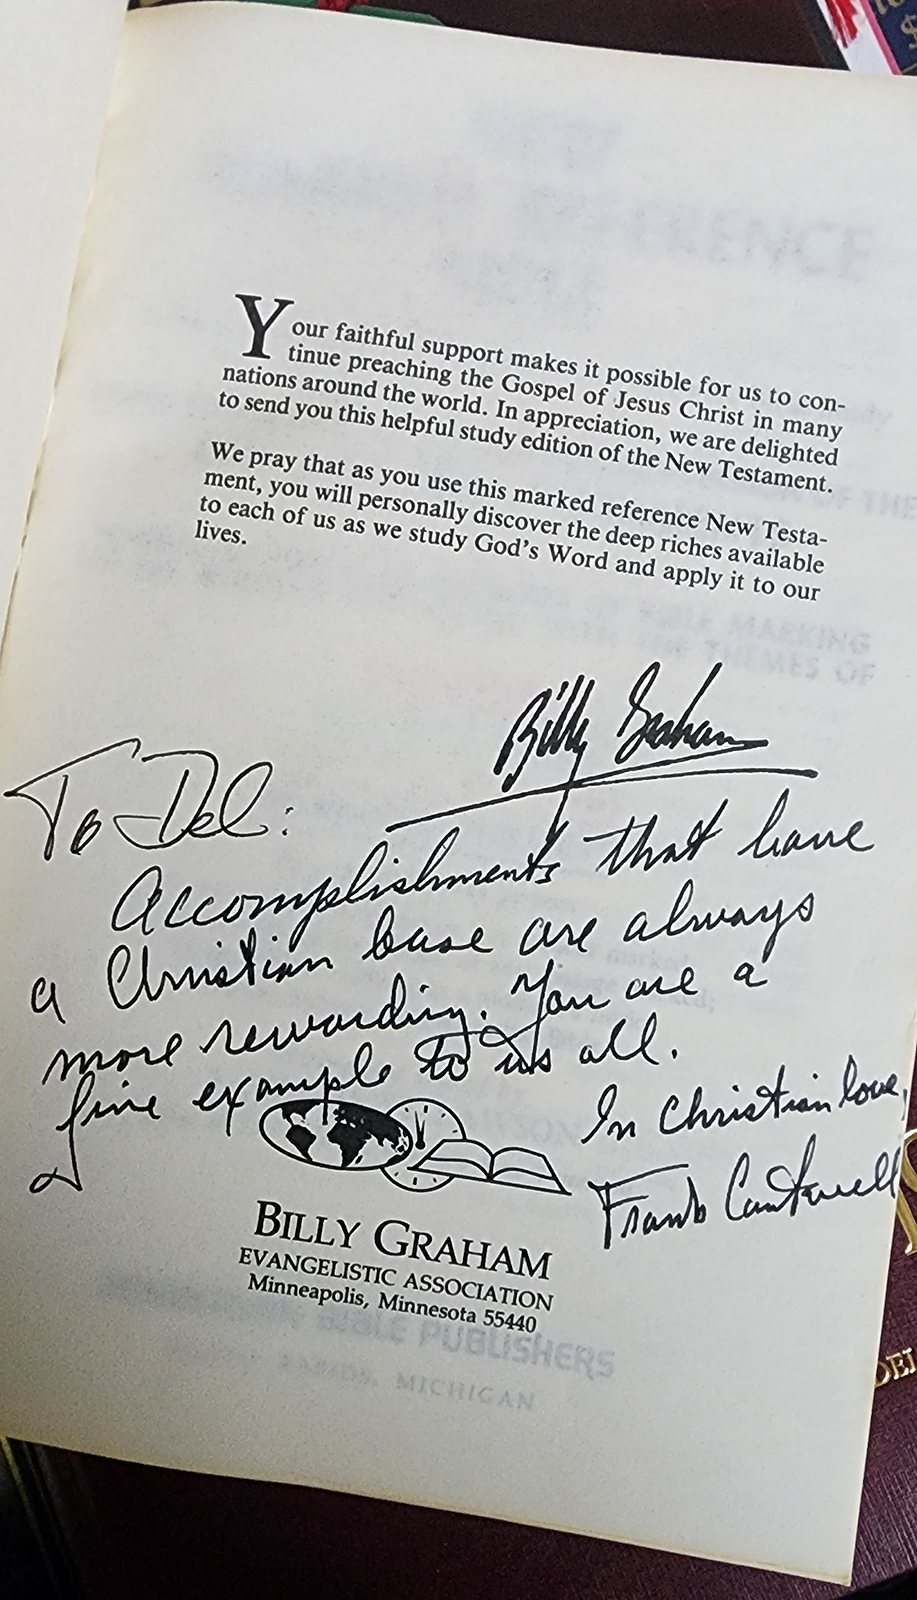 Your faithful support makes it possible for us to con-
tinue preaching the Gospel of Jesus Christ in many
nations around the world. In appreciation, we are delighted
to send you this helpful study edition of the New Testament.
We pray that as you use this marked reference New Testa-
ment, you will personally discover the deep riches available
to each of us as we study God's Word and apply it to our
lives.
Billy Graham
To Del:
Accomplishments that have
a Christian base are always
more rewarding. You are a
fine example to us all.
In Christian love,
Frank Cantwell
BILLY GRAHAM
EVANGELISTIC ASSOCIATION
Minneapolis, Minnesota 55440
ERENCE
OF THE
BIBLE MARKING
THE THEMES OF
BIBLE PUBLISHERS
MICHIGAN
DEL